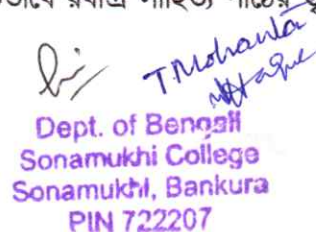 রবীন্দ্র সাহিত্য পাঠের
T Mohanta
Dept. of Bengali
Sonamukhi College
Sonamukhi, Bankura
PIN 722207